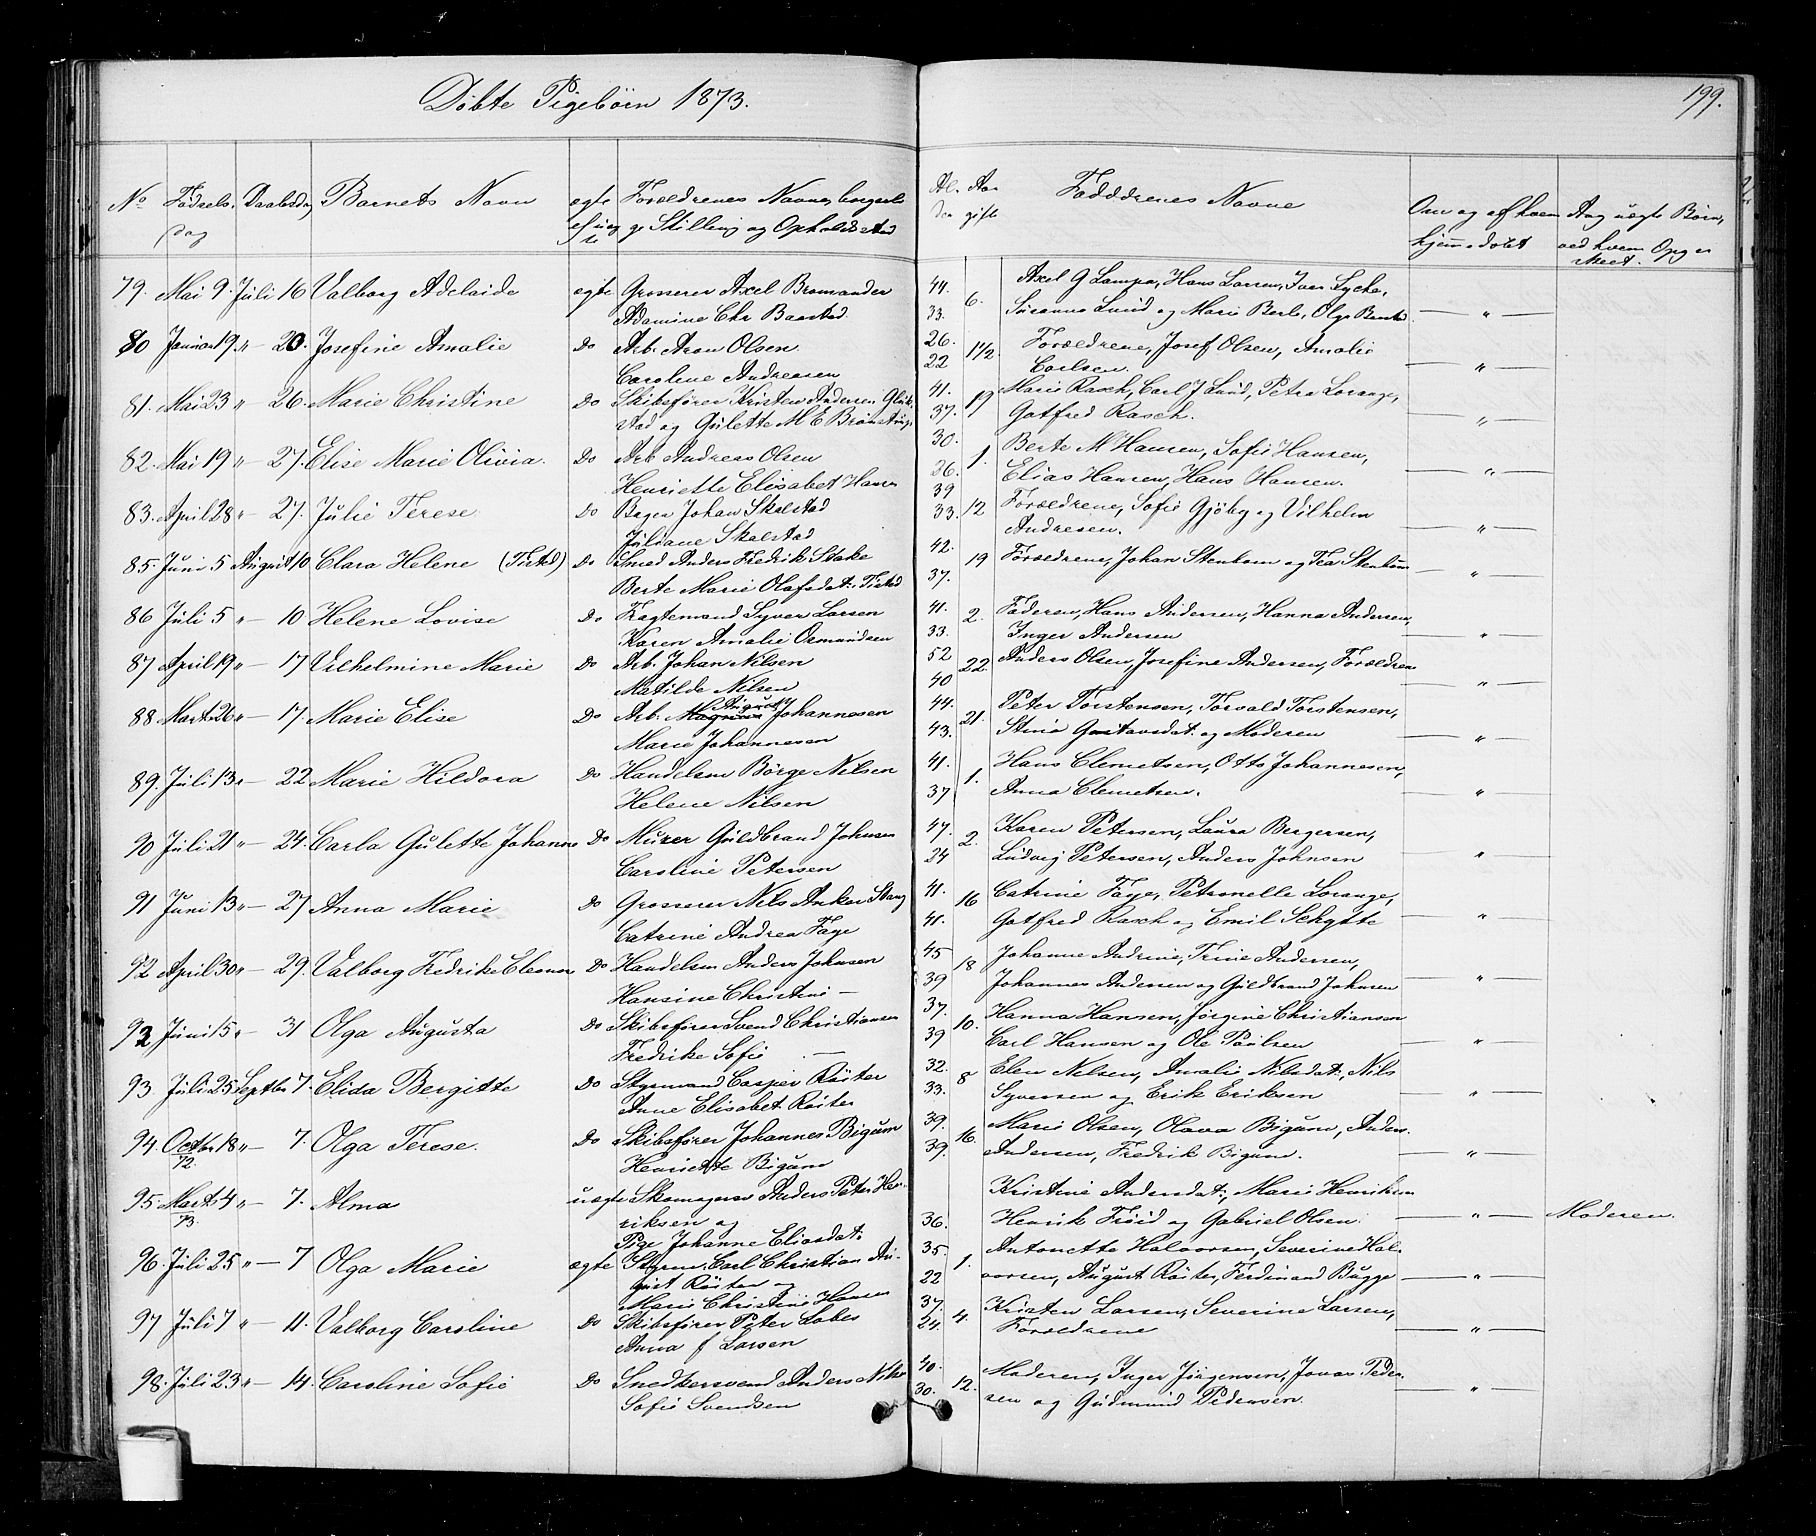 Döbte Pigebörn 1873.
199.
No Födsels- Daabsdag Barnets Navn ægte Forældrenes Navne, borgerl.
Dag g. Stilling og Opholdssted
Al- Aar Faddrenes Navne Om og af hvem Ang uægte Börn,
der gifte hjemmedöbt ved hvem Opg er skeet.
79. Mai 9. Juli 16 Valborg Adelaide ægte Grosserer Axel Bromander 44. 6. Axel G Lampe, Hans Larsen, Iver Lycke,
Adamine Chr Baastad. 33. Susanne Lund og Marie Berls, Olga Baastad — „ —
80 Januar 19. „ — 20. Josefine Amalie Do Arb. Aron Olsen 26. 1 1/2 Forældrene, Josef Olsen, Amalie
Caroline Andreasen 22 Carlsen. — „ —
81. Mai 23 „ — 26. Marie Christine Do Skibsförer Kristen Andersen Glük- 41. 19 Marie Rasch, Carl J Lund, Petra Lorange,
stad og Gulette M E Bromstrup 37. Gotfred Rasch. — „ —
82. Mai 19 „ — 27. Elise Marie Olivia. Do Arb. Andreas Olsen 30. 1. Berte M Hansen, Sofie Hansen,
Henriette Elisabet Hansen 26. Elias Hansen, Hans Hansen. — „ —
83. April 28 „ — 27. Julie Terese Do Bager Johan Skalstad 39 12 Forældrene, Sofie Gjöby og Vilhelm
Juliane Skalstad 33. Andresen. — „ —
85. Juni 5 August 10 Clara Helene (Tistd) Do Smed Anders Fredrik Stake 42. 19 Forældrene, Johan Stenkorn og Tea Stenkorn
Berte Marie Olafsdat., Tistd 37. — „ —
86 Juli 5 „ — 10 Helene Lovise Do Fragtemand Syver Larsen 41. 2. Faderen, Hans Andersen, Hanna Andersen,
Karen Amalie Osmundsen 33. Inger Andersen „
87 April 19 „ — 17 Vilhelmine Marie Do Arb. Johan Nilsen 52 22. Anders Olsen, Josefine Andersen, Forældrene
Matilde Nilsen 40 — „ —
88 Marts 26 „ — 17. Marie Elise Do Arb. August Johannesen 44. 21. Peter Torstensen, Torvald Torstensen,
Marie Johannesen 43. Stina Gustavsdat. og Moderen — „ —
89. Juli 13. „ — 22 Marie Hildora Do Handelsm Börge Nilsen 41. 1. Hans Clemetsen, Otto Johannesen,
Helene Nilsen 37 Anna Clemetsen. — „ —
90 Juli 21 „ — 24. Carla Gulette Johanne Do Murer Guldbrand Johnsen 47. 2. Karen Petersen, Laura Bergersen,
Caroline Petersen 24 Ludvig Petersen, Anders Johnsen „
91 Juni 13 „ — 27 Anna Marie Do Grosserer Nils Anker Stang 41. 16 Catrine Faye, Petronelle Lorange,
Catrine Andrea Faye 41. Gotfred Rasch og Emil Schytte — „ —
92 April 30 „ — 29. Valborg Fredrike Eleonore Do Handelsm Anders Johnsen 45 18 Johanne Andrine, Trine Andersen,
Hansine Christine — 39 Johannes Andersen og Guldbrand Johnsen — „ —
92 Juni 15 „ — 31 Olga Augusta Do Skibsförer Svend Christiansen 37. 10. Hanna Hansen, Jörgine Christiansen
Fredrike Sofie — 39 Carl Hansen og Ole Paulsen — „ —
93. Juli 25 Septbr 7. Elida Bergitte Do Styrmand Casper Röiter 32. 8 Elen Nilsen, Amalie Nilsdat., Nils
Anne Elisabet Röiter 33. Syversen og Erik Eriksen — „ —
94. Octbr 18 „ — 7. Olga Terese. Do Skibsförer Johannes Bigum 39. 16. Marie Olsen, Olava Bigum, Anders
72. Henriette Bigum 39. Andersen, Fredrik Bigum. — „ —
95. Marts 4 „ — 7. Alma uægte Skomager Anders Peter Hen- Kristine Andersdat., Marie Henriksen
73. riksen og 36. Henrik Fröid og Gabriel Olsen. — „ — Moderen.
Pige Johanne Eliasdat.
96. Juli 25 „ — 7 Olga Marie ægte Styrm. Carl Christian Au- 35. 1. Antonette Halvorsen, Severine Hal-
gust Röiter og 22 vorsen, August Röiter, Ferdinand Bugge — „ —
Marie Christine Hansen
97 Juli 7 „ — 11. Valborg Caroline Do Skibsförer Peter Lobes 37. 4. Kristen Larsen, Severine Larsen,
Anna f Larsen 24. Forældrene — „ —
98. Juli 23 „ — 14. Caroline Sofie Do Snedkersvend Anders Nils 40. 12. Moderen, Inger Jörgensen, Jonas Peder-
Sofie Svendsen 30. sen og Gudmund Pedersen. — „ —